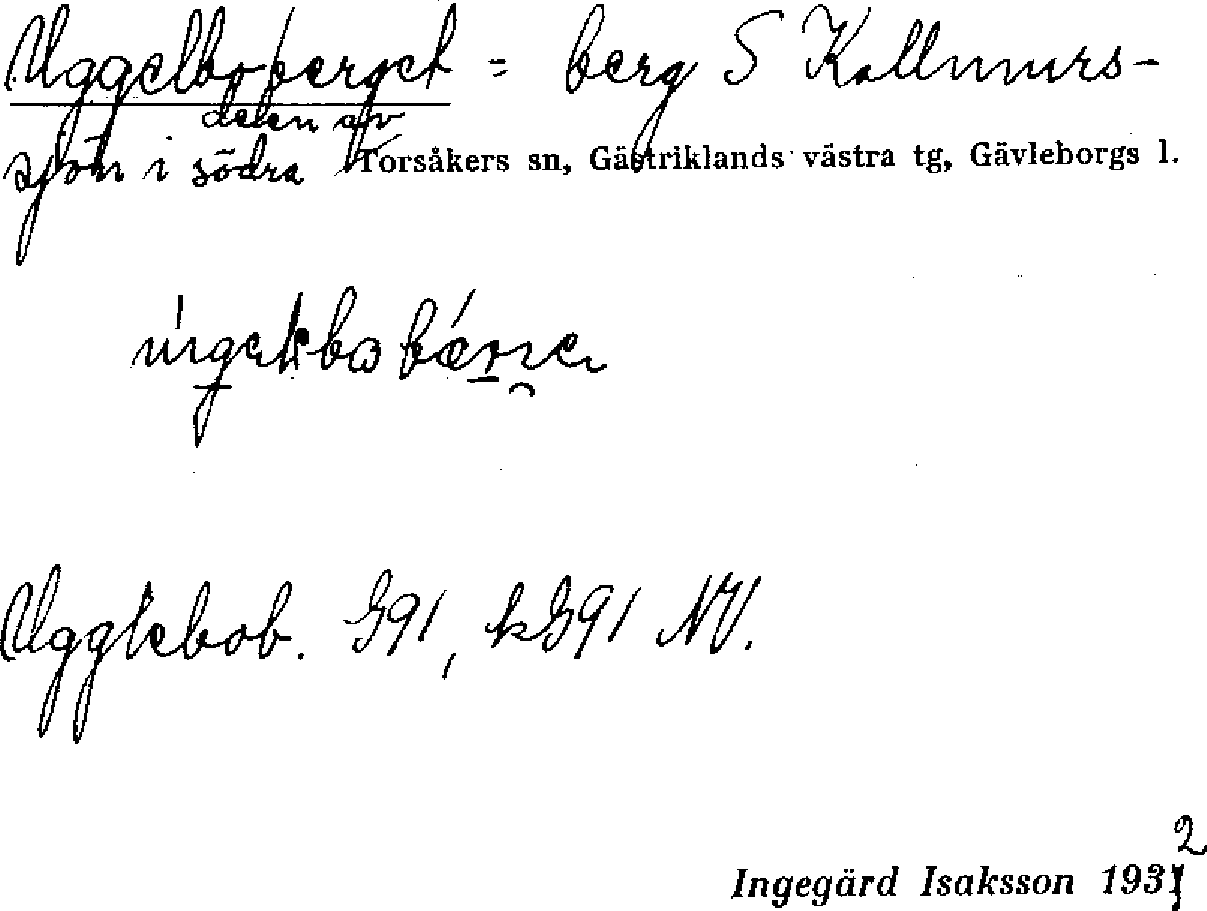 Uggelboberget = berg S Kallmurs-
delen av
sjön i södra Torsåkers sn, Gästriklands västra tg, Gävleborgs l.
Ugglebob. G91, kG91 NV.
2
Ingegärd Isaksson 1931